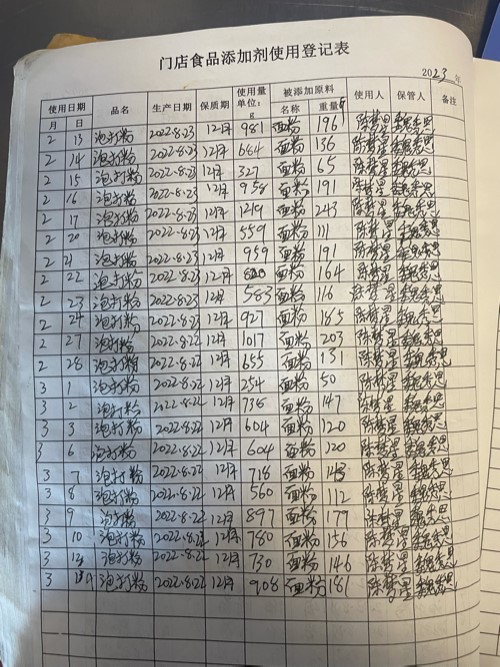 门店食品添加剂使用登记表
2023年
使用日期 品名 生产日期 保质期 使用量单位:g 被添加原料 使用人 保管人 备注
月 日 名称 重量
2 13 泡打粉 2022.8.23 12月 981 面粉 196 陈梦星 魏秀思
2 14 泡打粉 2022.8.23 12月 684 面粉 136 陈梦星 魏秀思
2 15 泡打粉 2022.8.23 12月 327 面粉 65 陈梦星 魏秀思
2 16 泡打粉 2022.8.23 12月 958 面粉 191 陈梦星 魏秀思
2 17 泡打粉 2022.8.23 12月 1219 面粉 243 陈梦星 魏秀思
2 20 泡打粉 2022.8.23 12月 559 面粉 111 陈梦星 魏秀思
2 21 泡打粉 2022.8.23 12月 959 面粉 191 陈梦星 魏秀思
2 22 泡打粉 2022.8.23 12月 820 面粉 164 陈梦星 魏秀思
2 23 泡打粉 2022.8.23 12月 583 面粉 116 陈梦星 魏秀思
2 24 泡打粉 2022.8.23 12月 927 面粉 185 陈梦星 魏秀思
2 27 泡打粉 2022.8.22 12月 1017 面粉 203 陈梦星 魏秀思
2 28 泡打粉 2022.8.22 12月 655 面粉 131 陈梦星 魏秀思
3 1 泡打粉 2022.8.22 12月 254 面粉 50 陈梦星 魏秀思
3 2 泡打粉 2022.8.22 12月 738 面粉 147 陈梦星 魏秀思
3 3 泡打粉 2022.8.22 12月 604 面粉 120 陈梦星 魏秀思
3 6 泡打粉 2022.8.22 12月 604 面粉 120 陈梦星 魏秀思
3 7 泡打粉 2022.8.22 12月 718 面粉 143 陈梦星 魏秀思
3 8 泡打粉 2022.8.22 12月 560 面粉 112 陈梦星 魏秀思
3 9 泡打粉 2022.8.22 12月 897 面粉 179 陈梦星 魏秀思
3 10 泡打粉 2022.8.22 12月 780 面粉 156 陈梦星 魏秀思
3 泡打粉 2022.8.22 12月 730 面粉 146 陈梦星 魏秀思
3 泡打粉 2022.8.22 12月 908 面粉 181 陈梦星 魏秀思